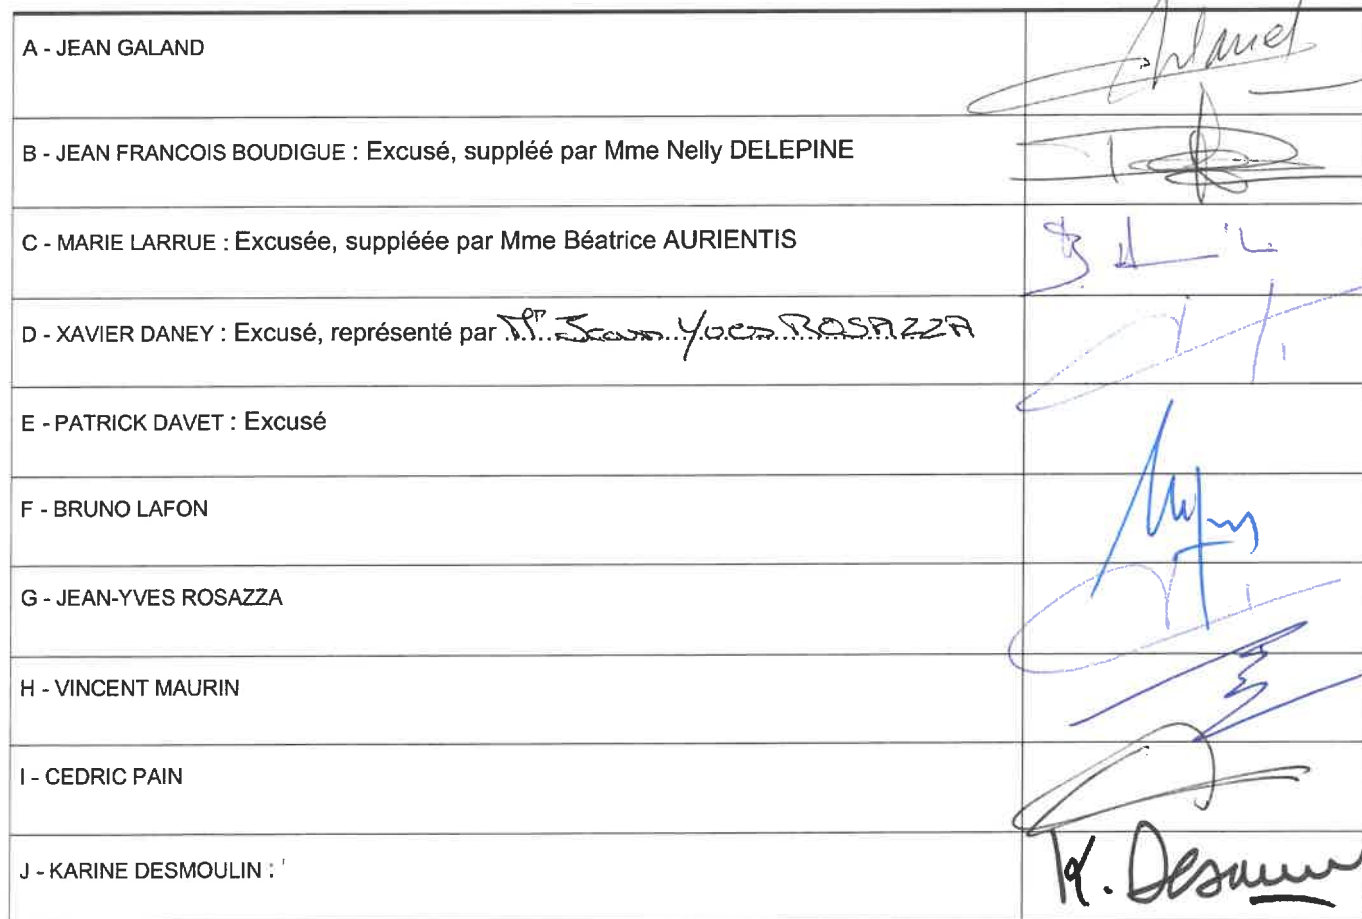 A - JEAN GALAND
B - JEAN FRANCOIS BOUDIGUE : Excusé, suppléé par Mme Nelly DELEPINE
C - MARIE LARRUE : Excusée, suppléée par Mme Béatrice AURIENTIS
D - XAVIER DANEY : Excusé, représenté par Mr Jean Yves ROSAZZA
E - PATRICK DAVET : Excusé
F - BRUNO LAFON
G - JEAN-YVES ROSAZZA
H - VINCENT MAURIN
I - CEDRIC PAIN
J - KARINE DESMOULIN : K. Desmou